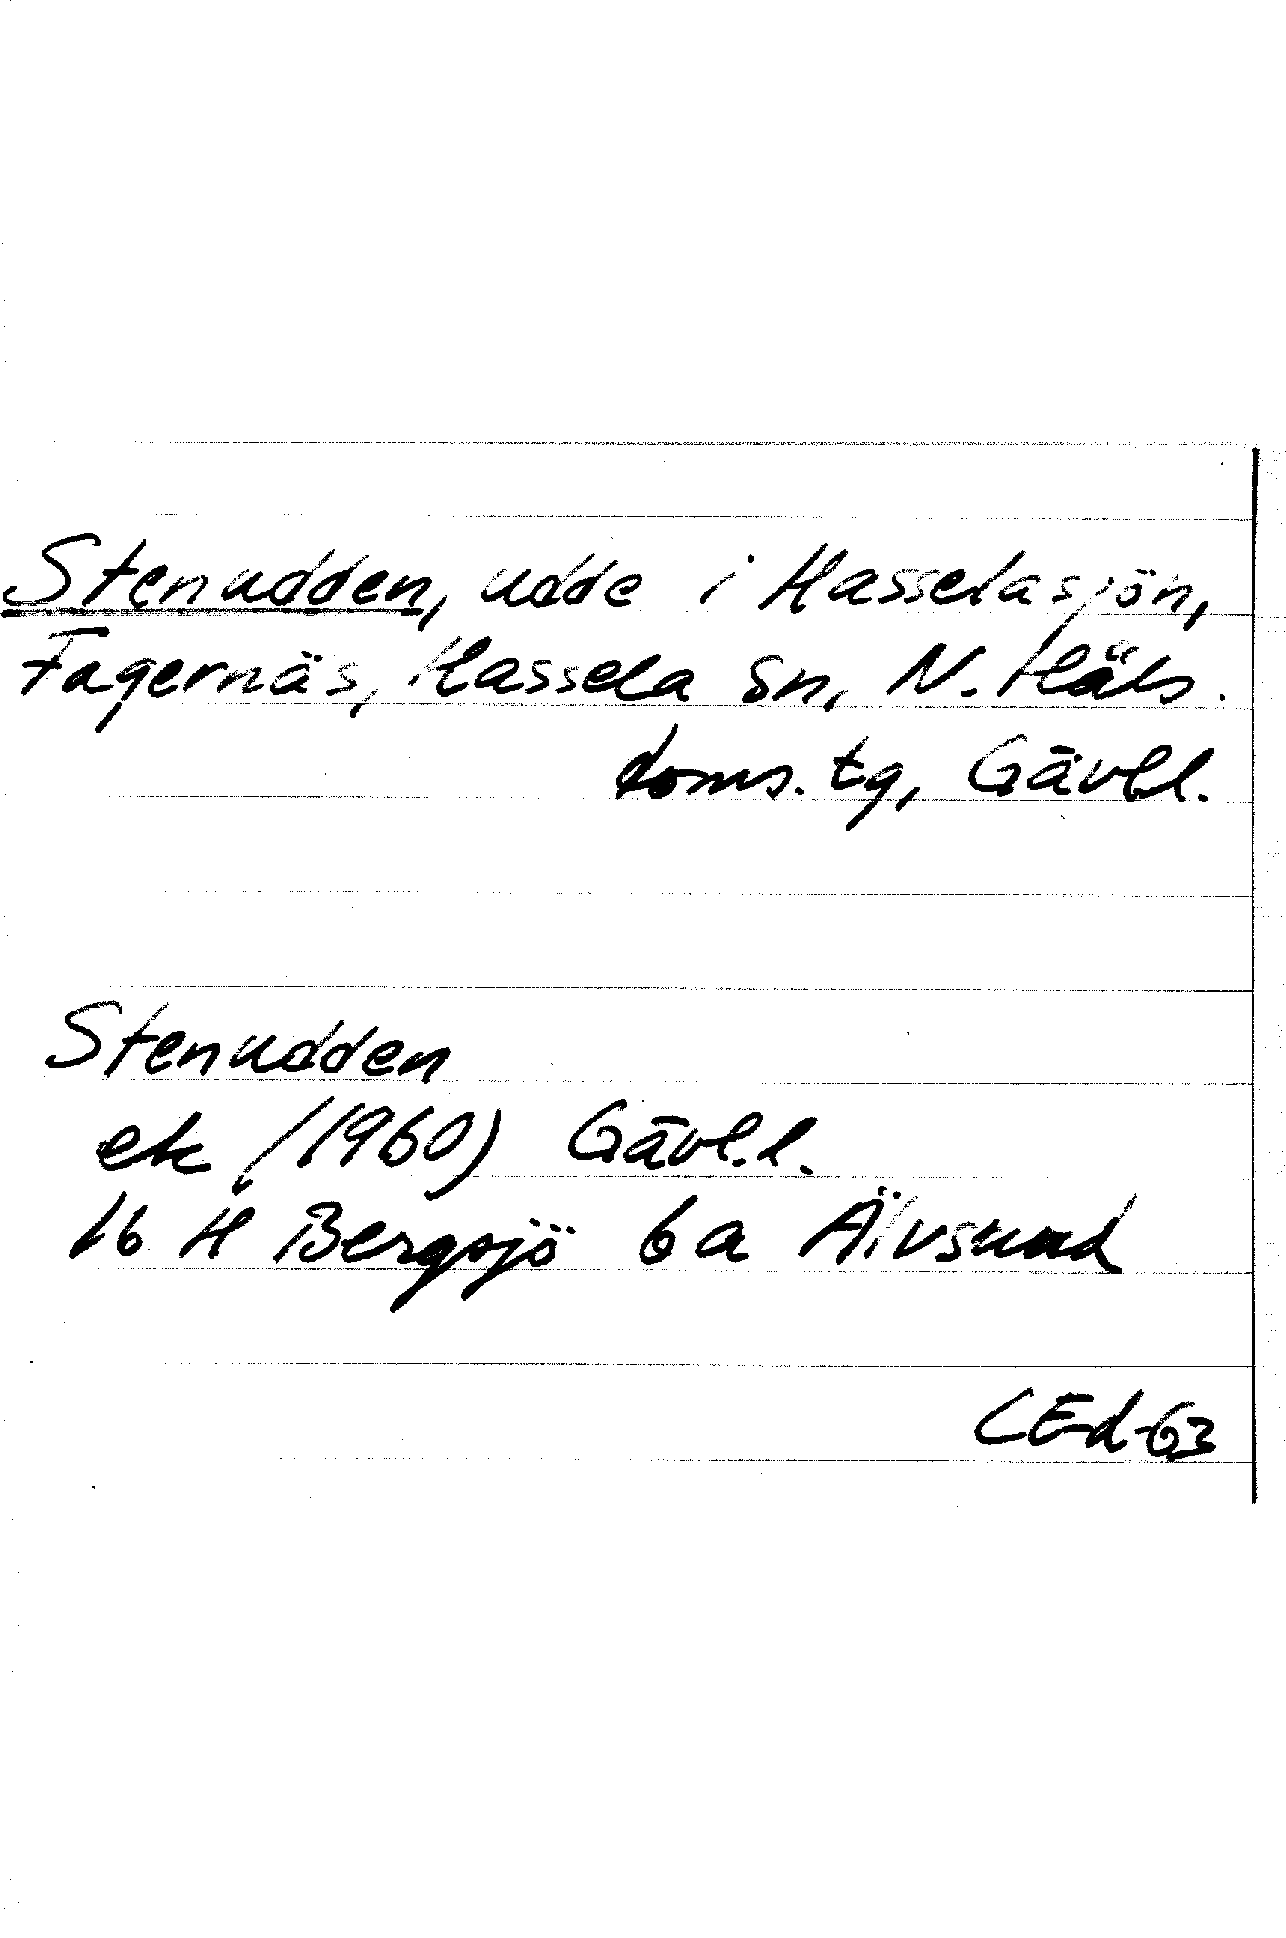 Stenudden, udde i Hasselasjön,
Fagernäs, Hassela sn, N. Häls.
doms. tg, Gävl.l.
Stenudden
ek (1960) Gävl.l.
16 H Bergsjö 6a Älvsund
CEd-63